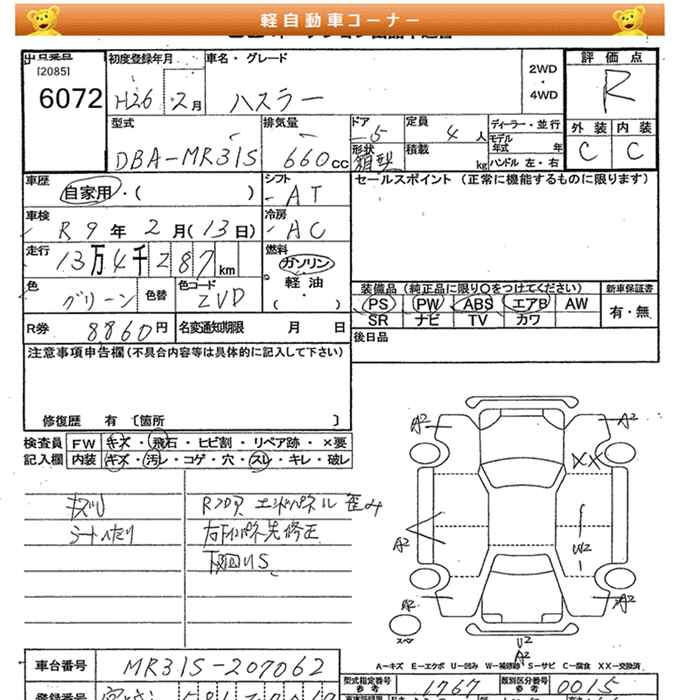 軽自動車コーナー
出品番号
[2085]
6072
初度登録年月
H26 2月
車名・グレード
ハスラー
2WD
・
4WD
評価点
R
外装 内装
C C
型式
DBA-MR31S
排気量
660cc
ドア 5
形状
定員 4人
積載 kg
ディーラー・並行
モデル
年式 年
ハンドル 左・右
車歴
自家用・( )
シフト
AT
セールスポイント (正常に機能するものに限ります)
車検
R9年2月(13日)
冷房
AC
走行
13万4千287km
燃料
ガソリン
軽油
( )
色
グリーン
色替
色コード
ZVD
装備品 (純正品に限り○をつけてください)
PS PW ABS エアB AW
SR ナビ TV カワ
新車保証書
有・無
R券 8860円
名変通知期限 月 日
後日品
注意事項申告欄(不具合内容等は具体的に記入して下さい)
修復歴 有 〔箇所 〕
検査員
記入欄
FW キズ・飛石・ヒビ割・リペア跡・×要
内装 キズ・汚レ・コゲ・穴・スレ・キレ・破レ
Rフロア エンドパネル 歪み
下回りS
A2
A2
XX
A2
U2
A2
スペア
U2
A2
A−キズ E−エクボ U−凹み W−補修跡 S−サビ C−腐食 XX−交換済
車台番号
MR31S-207062
型式指定番号
参考
1767
類別区分番号
参考
0015